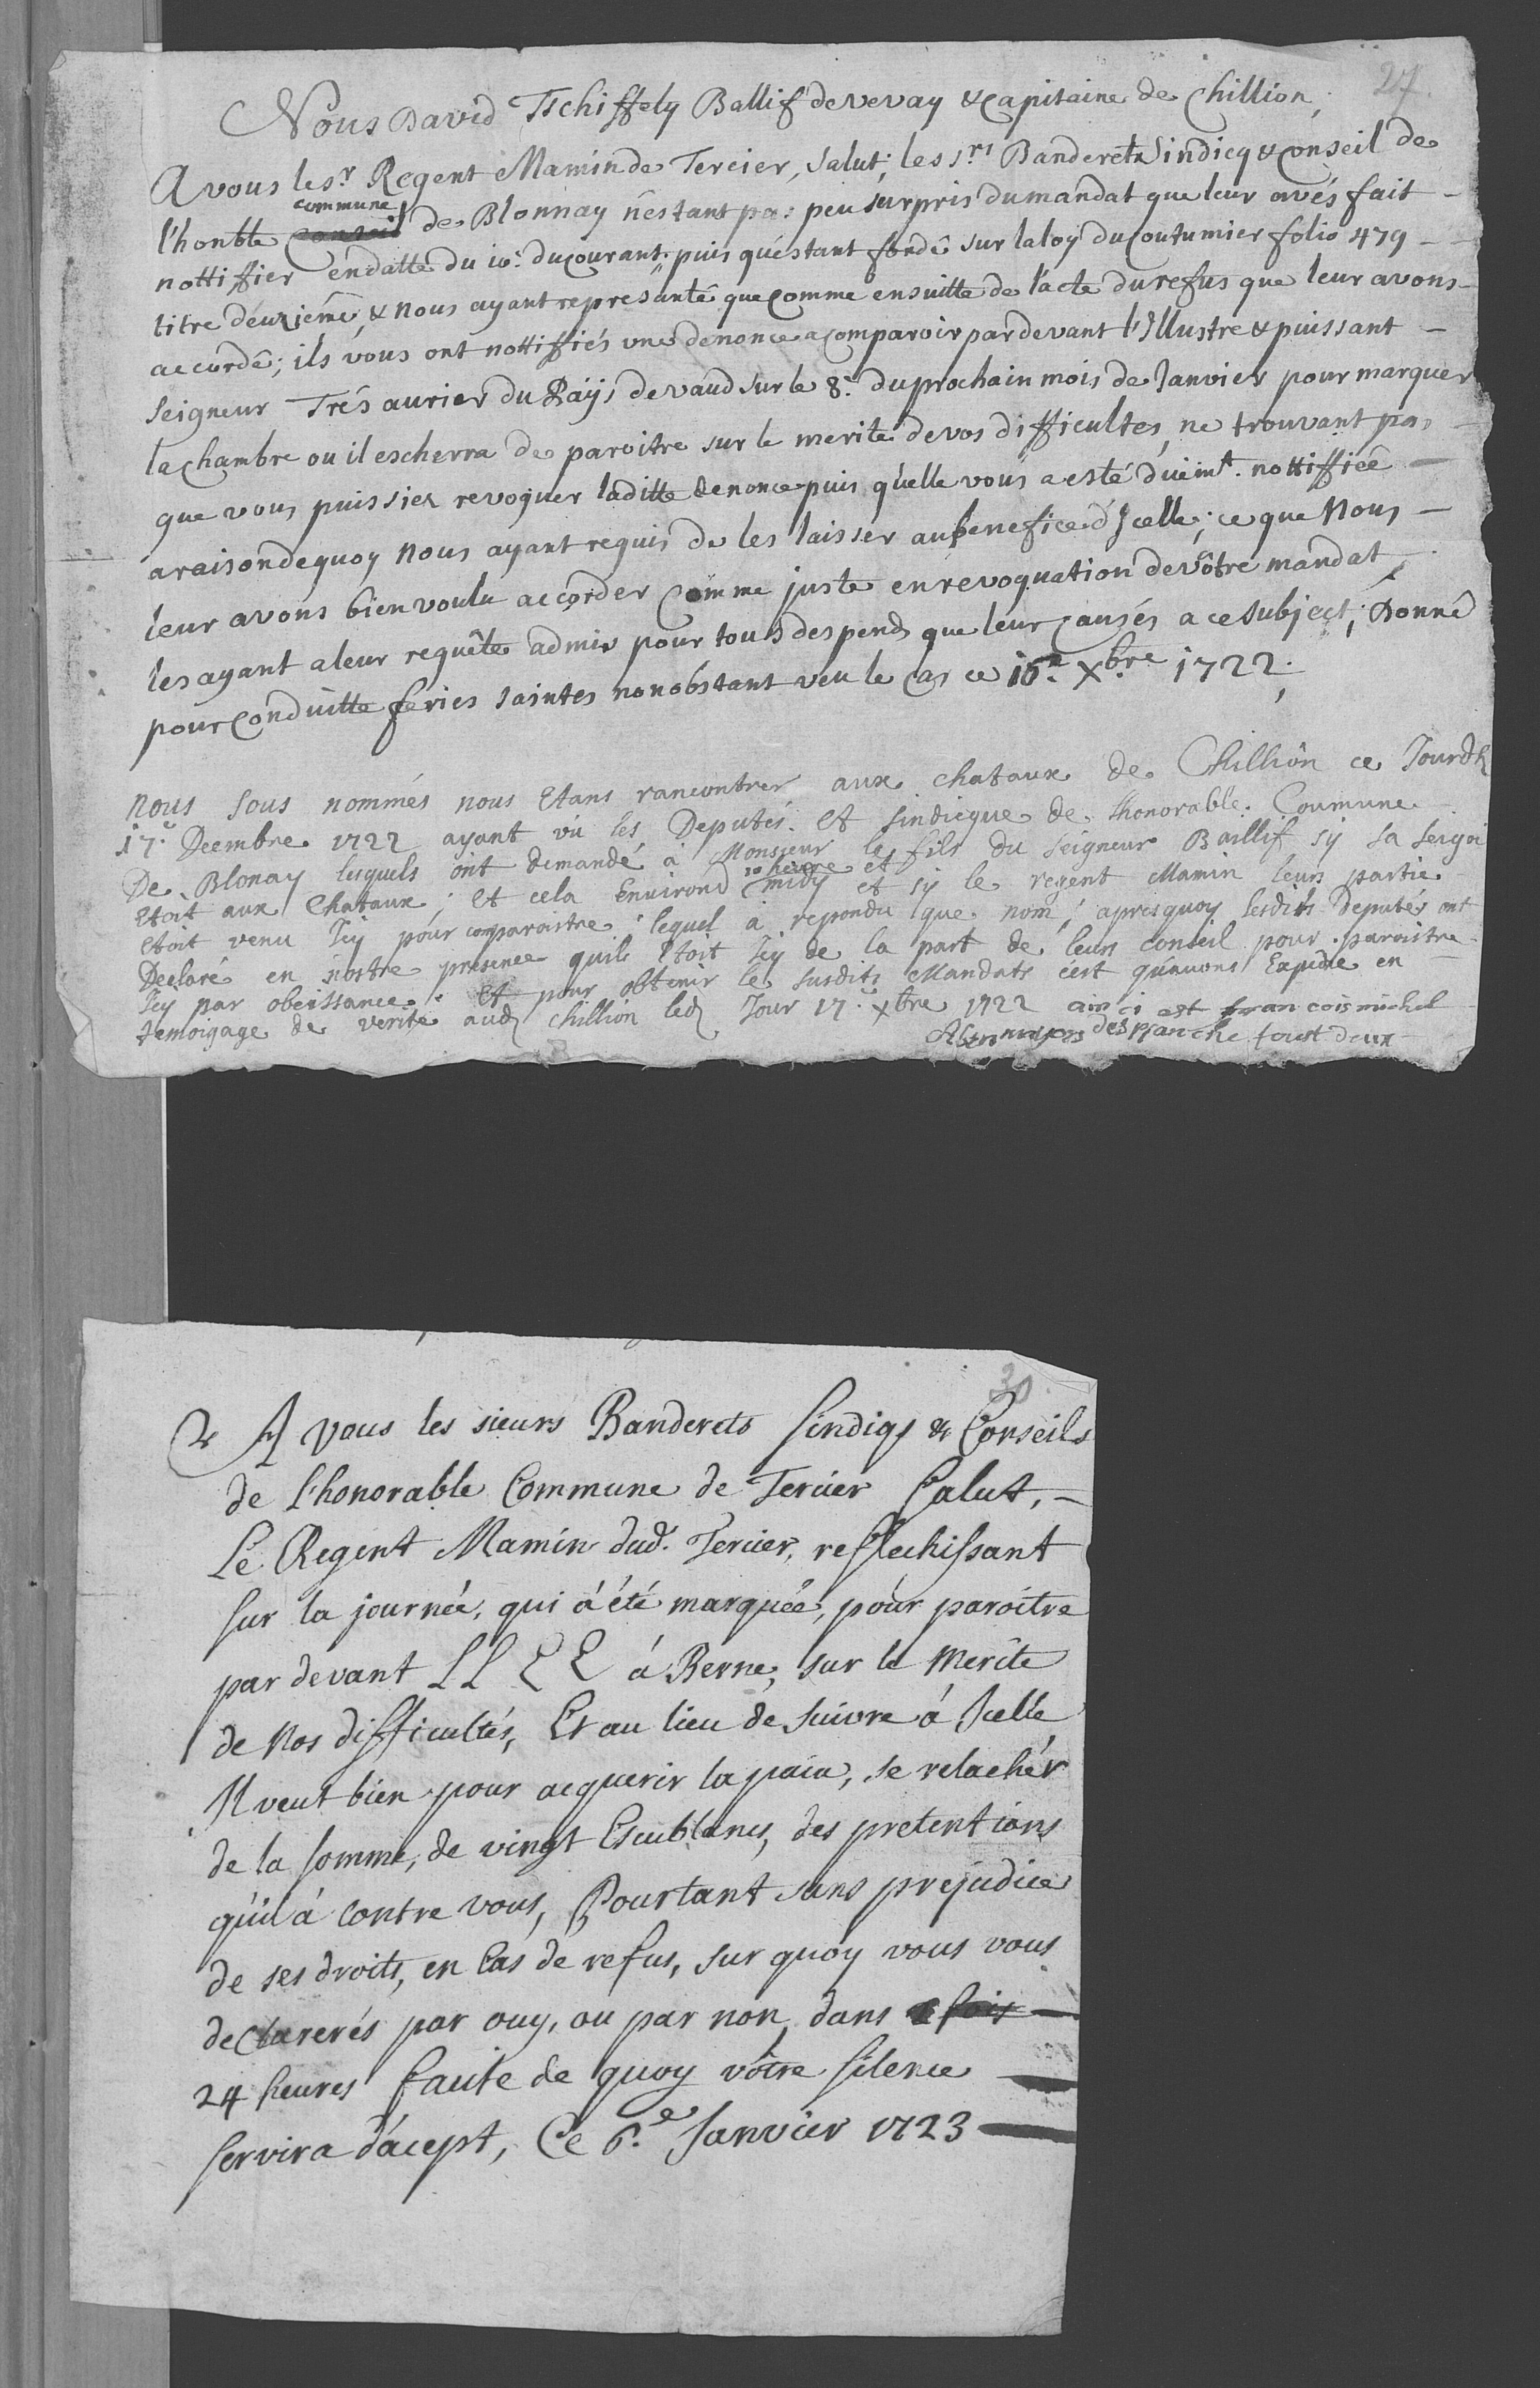 27.
Nous David Tschiffely Ballif de vevay & Capitaine de Chillion,
A vous le sr. Regent Mamin de Tercier, salut; les srs Banderets Sindicq & Conseil de
commune
l'honble Conseil de Blonnay n'estant pas peu surpris du mandat que leur avés fait
nottiffier en datte du 10e. du courant, puis qu'estant fondé sur la loy du Coutumier folio 479
titre deuziéme, & nous ayant represanté que comme ensuitte de l'acte du refus que leur avons
accordé; ils vous ont nottiffiés une denonce a comparoir par devant l'Illustre & puissant
seigneur Trésaurier du Païs de vaud sur le 8e. du prochain mois de Janvier pour marquer
la chambre ou il escherra de paroitre sur le merite de vos difficultes, ne trouvant pas
que vous puissiez revoquer laditte denonce puis qu'elle vous a esté düemt. nottiffiée
a raison de quoy nous ayant requis de les laisser au benefice d'Icelle; ce que Nous
leur avons bien voulu accorder Comme juste en revoquation de vôtre mandat,
les ayant a leur requête admis pour tous despends que leur causés a ce subject; Donné
pour conduitte feries saintes nonobstant veu le cas ce 16e. Xbre 1722.
Nous sous nommés nous Etans rancontrer aux chataux de Chillion ce Jourdh
17e. Decembre 1722 ayant vû les Deputés et sindicque de Lhonorable Commune
De Blonay lesquels ont demandé à Monsieur le fils du seigneur Baillif sÿ sa seigri
10 heure et
Etoit aux Chataux; et cela Environd midy et sÿ le regent Mamin leurs partie
Etoit venu Icy pour comparoistre; lequel à repondu que nom; apres quoy lesdits Deputés ont
Declaré en nostre presence quils Etoit Icy de la part de leurs conseil pour paroistre
Icy par obeissance. Et pour obtenir le susdits Mandats c'est qu'avons Expedié en
temoigage de verite aud chillion led Jour 17. xbre 1722 ainci est francois michel
des planche toust deux
30.
A vous les sieurs Banderets Sindiqs & Conseils
de l'honorable Commune de Tercier Salut,
Le Regent Mamin dud. Tercier, reflechissant
sur la journée, qui à été marquée, pour paroitre
par devant LL EE á Berne, sur le Merite
de Nos difficultés, Et au lieu de suivre á Icelle
Il veut bien pour acquerir la paix, se relachér
de la somme, de vingt Escublancs, des pretentions
qu'il á Contre vous, Pourtant sans prejudice
de ses droits, en Cas de refus, sur quoy vous vous
declarerés par ouy, ou par non, dans
24 heures faute de quoy vôtre silence
servira d'acept, Ce 6.e Janvier 1723